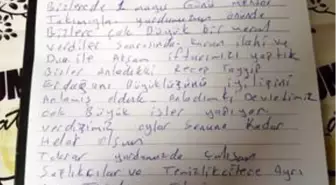 Bizlerede 1 mayıs Günü
yurdumuzun önünde
Bizlere çok Büyük bir
verdiler Sonrasında Kuran ilahi ve
Dua ile Akşam iftarımızı yaptık
Bizler Anladıkki Recep Tayyip
Erdoğanın Büyüklüğünü iyiliğini
Anlamış olduk Anladımki Devletimiz
çok Büyük işler yapıyor
verdiğimiz oylar Sonuna kadar
Helal olsun
Tekrar yurdumuzda çalışan
Sağlıkçılar ve Temizlikçilere Ayrı